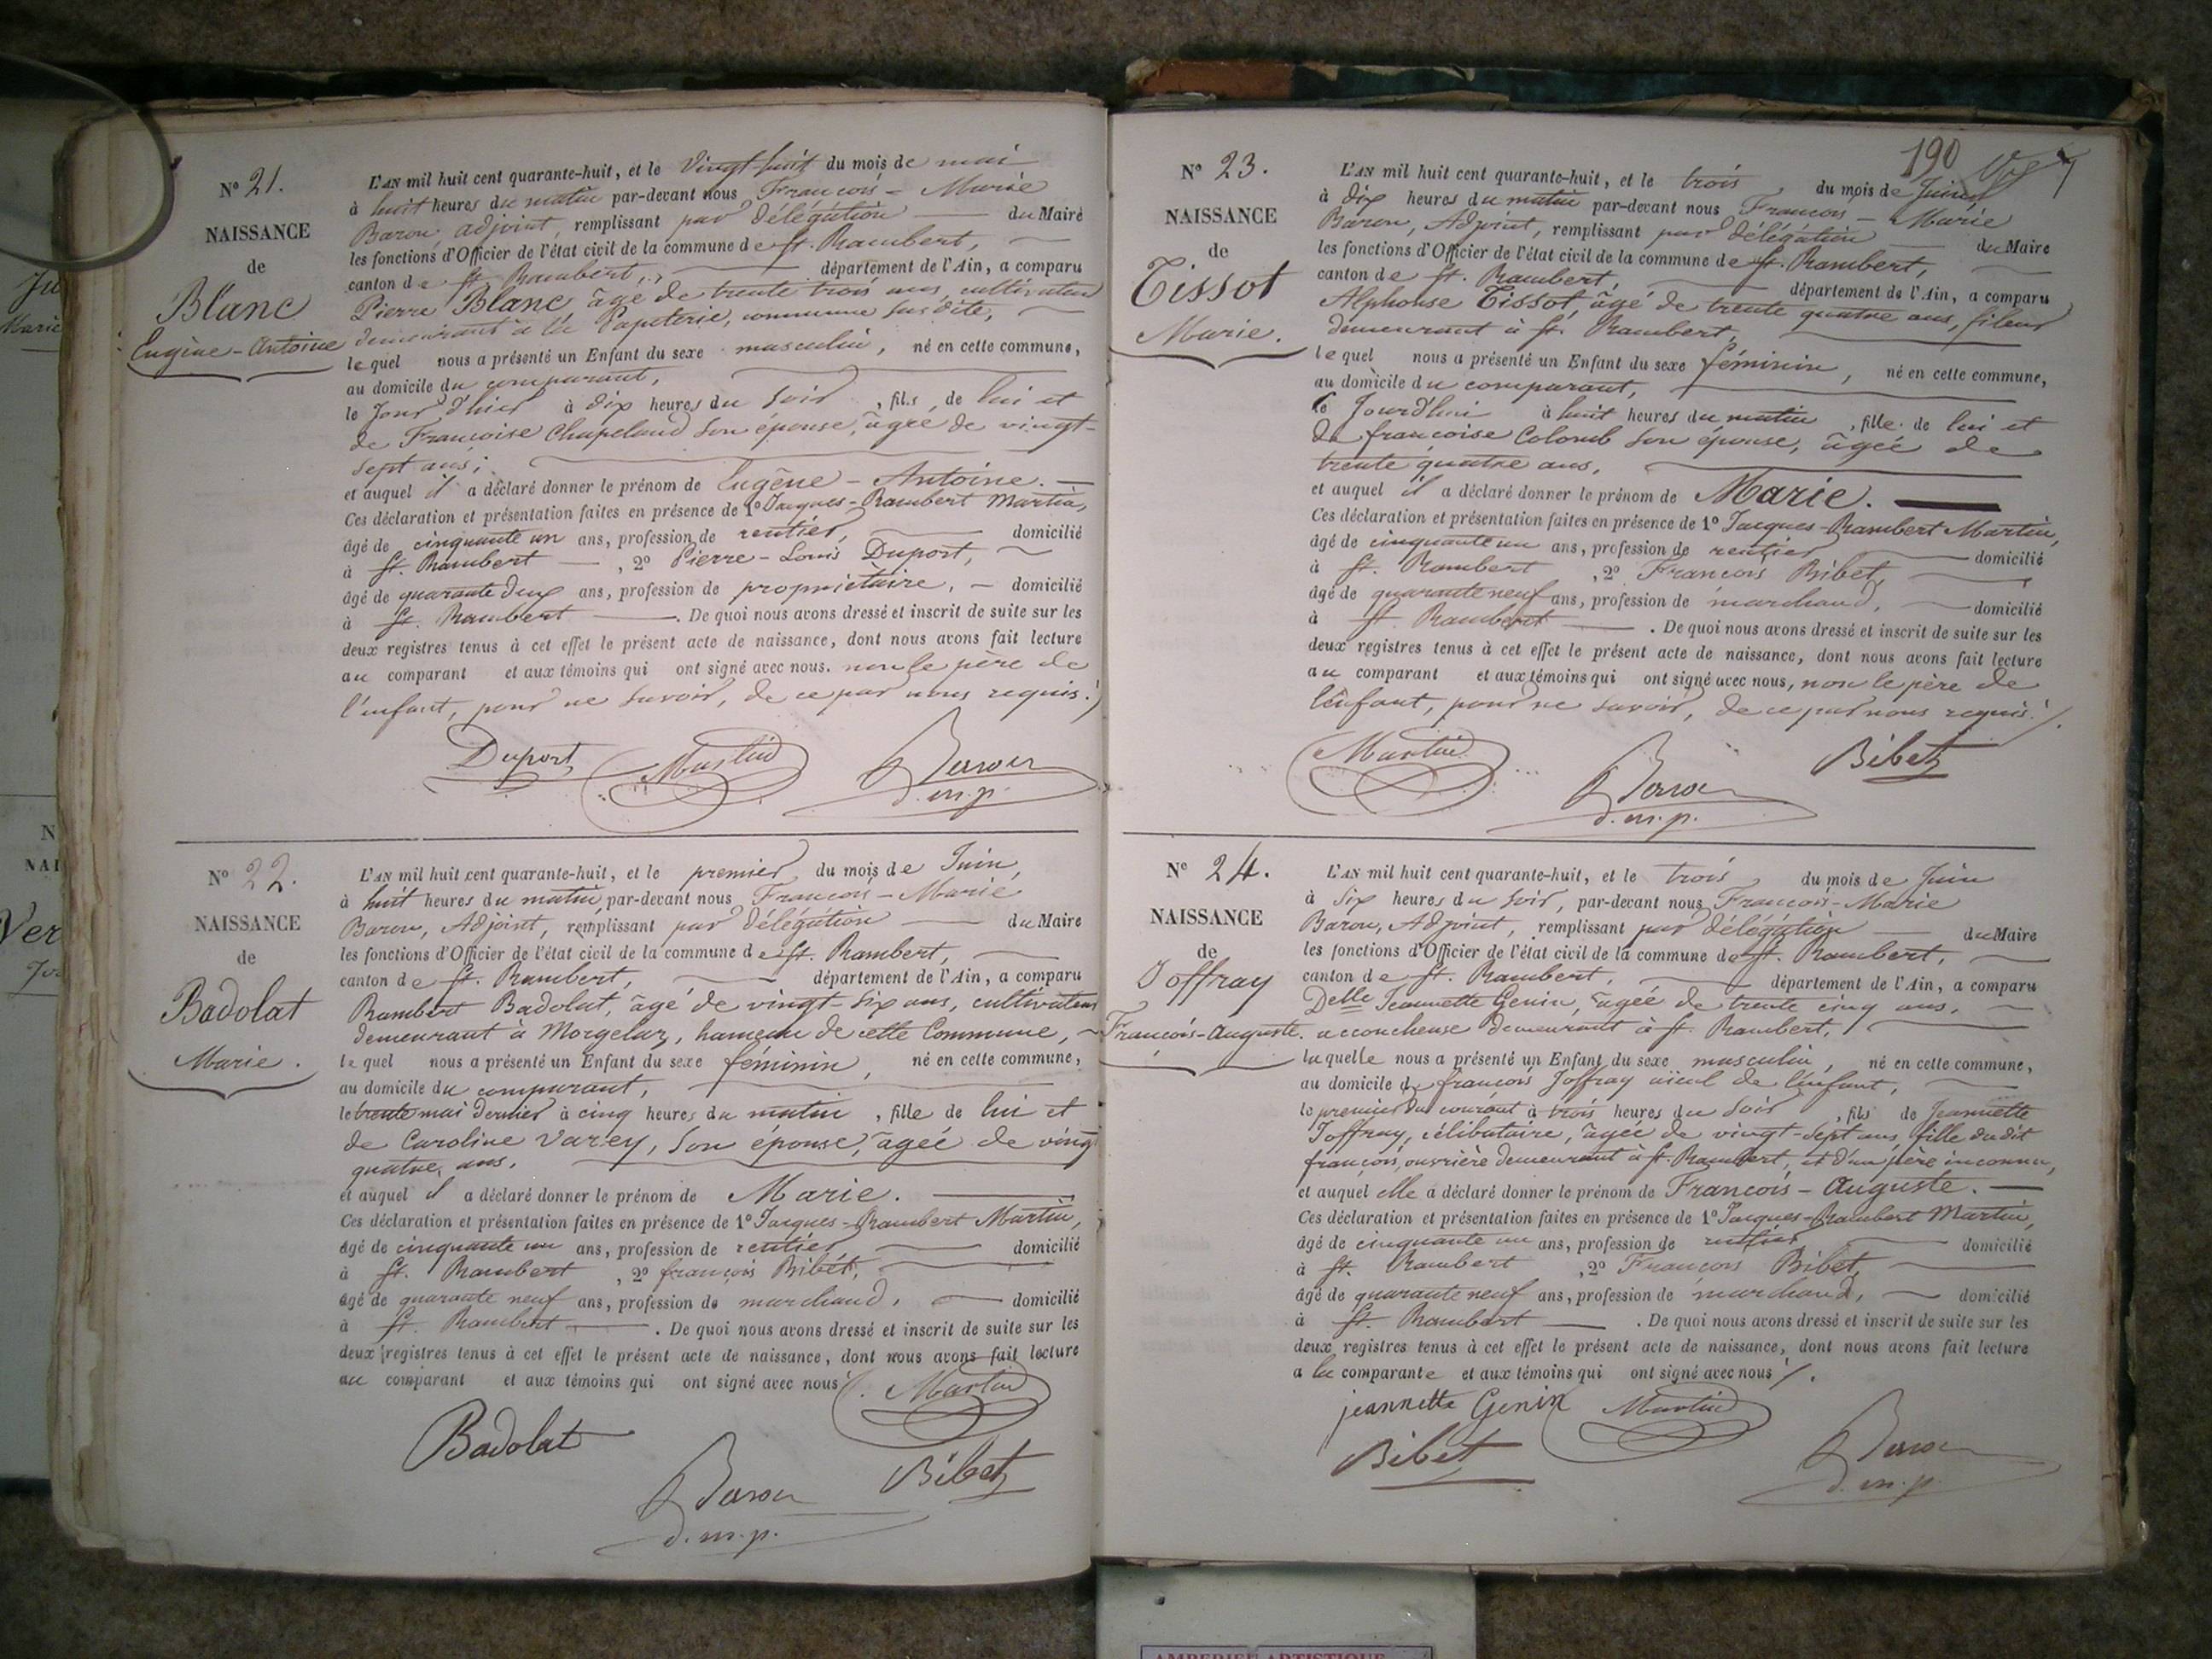 Nº 21.
NAISSANCE
de
Blanc
Eugène-Antoine
L'AN mil huit cent quarante-huit, et le vingt-huit du mois de mai
à huit heures du matin par-devant nous François-Marie
Baron adjoint, remplissant par délégation du Maire
les fonctions d'Officier de l'état civil de la commune de St. Rambert,
canton de St. Rambert, département de l'Ain, a comparu
Pierre Blanc âgé de trente trois ans, cultivateur
demeurant à la Papeterie, commune susdite,
lequel nous a présenté un Enfant du sexe masculin, né en cette commune,
au domicile du comparant,
le jour d'hier à dix heures du soir, fils de lui et
de Françoise Chapeland son épouse, âgée de vingt-
sept ans;
et auquel il a déclaré donner le prénom de Eugène-Antoine.
Ces déclaration et présentation faites en présence de 1º Jacques-Rambert Martin,
âgé de cinquante un ans, profession de rentier, domicilié
à St. Rambert, 2º Pierre-Louis Duport,
âgé de quarante deux ans, profession de propriétaire, domicilié
à St. Rambert. De quoi nous avons dressé et inscrit de suite sur les
deux registres tenus à cet effet le présent acte de naissance, dont nous avons fait lecture
au comparant et aux témoins qui ont signé avec nous. non le père de
l'enfant, pour ne savoir, de ce par nous requis.
Duport Martin Baron
d.m.p.
Nº 22.
NAISSANCE
de
Badolat
Marie.
L'AN mil huit cent quarante-huit, et le premier du mois de Juin,
à huit heures du matin, par-devant nous François-Marie
Baron, Adjoint, remplissant par délégation du Maire
les fonctions d'Officier de l'état civil de la commune de St. Rambert,
canton de St. Rambert, département de l'Ain, a comparu
Rambert Badolat, âgé de vingt six ans, cultivateur
demeurant à Morgelaz, hameau de cette Commune,
lequel nous a présenté un Enfant du sexe féminin, né en cette commune,
au domicile du comparant,
le trente mai dernier à cinq heures du matin, fille de lui et
de Caroline Varey, son épouse, âgée de vingt
quatre ans.
et auquel il a déclaré donner le prénom de Marie.
Ces déclaration et présentation faites en présence de 1º Jacques-Rambert Martin,
âgé de cinquante un ans, profession de rentier domicilié
à St. Rambert, 2º françois Bibet,
âgé de quarante neuf ans, profession de marchand, domicilié
à St. Rambert. De quoi nous avons dressé et inscrit de suite sur les
deux registres tenus à cet effet le présent acte de naissance, dont nous avons fait lecture
au comparant et aux témoins qui ont signé avec nous. Martin
Badolat
Baron Bibet
d.m.p.
190
Nº 23.
NAISSANCE
de
Tissot
Marie.
L'AN mil huit cent quarante-huit, et le trois du mois de Juin
à dix heures du matin par-devant nous François-Marie
Baron, Adjoint, remplissant par délégation du Maire
les fonctions d'Officier de l'état civil de la commune de St. Rambert,
canton de St. Rambert, département de l'Ain, a comparu
Alphonse Tissot, âgé de trente quatre ans, fileur
demeurant à St. Rambert,
lequel nous a présenté un Enfant du sexe féminin, né en cette commune,
au domicile du comparant,
ce Jourd'hui à huit heures du matin, fille de lui et
de françoise Colomb son épouse, âgée de
trente quatre ans.
et auquel il a déclaré donner le prénom de Marie.
Ces déclaration et présentation faites en présence de 1º Jacques-Rambert Martin,
âgé de cinquante un ans, profession de rentier domicilié
à St. Rambert, 2º François Bibet,
âgé de quarante neuf ans, profession de marchand, domicilié
à St Rambert. De quoi nous avons dressé et inscrit de suite sur les
deux registres tenus à cet effet le présent acte de naissance, dont nous avons fait lecture
au comparant et aux témoins qui ont signé avec nous, non le père de
l'enfant, pour ne savoir, de ce par nous requis.
Martin Baron Bibet
d.m.p.
Nº 24.
NAISSANCE
de
Joffray
François-Auguste.
L'AN mil huit cent quarante-huit, et le trois du mois de Juin
à six heures du soir, par-devant nous François-Marie
Baron, Adjoint, remplissant par délégation du Maire
les fonctions d'Officier de l'état civil de la commune de St. Rambert,
canton de St. Rambert, département de l'Ain, a comparu
Delle Jeannette Genin, âgée de trente cinq ans,
accoucheuse demeurant à St. Rambert,
laquelle nous a présenté un Enfant du sexe masculin, né en cette commune,
au domicile de françois Joffray aïeul de l'enfant,
le premier du courant à trois heures du soir, fils de Jeannette
Joffray, célibataire, âgée de vingt-sept ans, fille dudit
françois, ouvrière demeurant à St. Rambert, et d'un père inconnu,
et auquel elle a déclaré donner le prénom de François-Auguste.
Ces déclaration et présentation faites en présence de 1º Jacques-Rambert Martin,
âgé de cinquante un ans, profession de rentier domicilié
à St. Rambert, 2º François Bibet,
âgé de quarante neuf ans, profession de marchand, domicilié
à St. Rambert. De quoi nous avons dressé et inscrit de suite sur les
deux registres tenus à cet effet le présent acte de naissance, dont nous avons fait lecture
a la comparante et aux témoins qui ont signé avec nous.
jeannette Genin Martin
Bibet Baron
d.m.p.
AMBERIEU ARTISTIQUE